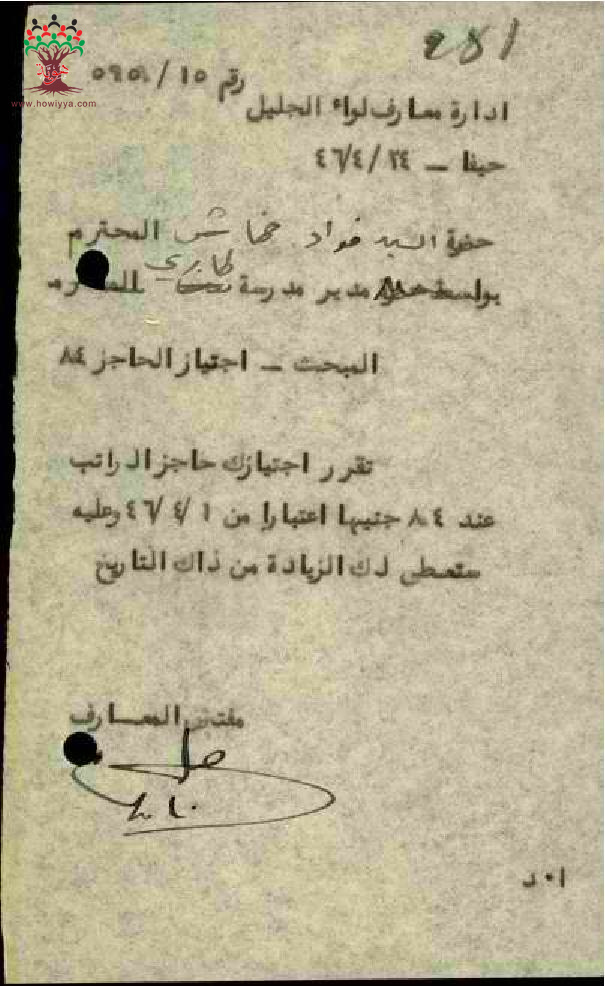 ٤٨١
رقم ١٥/ ٥٩٥
www.howiyya.com
ادارة معارف لواء الجليل
حيفا – ٢٤/ ٤/ ٤٦
حضرة السيد فواد خماش المحترم
بواسطة مدير مدرسة المحترم
المبحث – اجتياز الحاجز ٨٤
تقرر اجتيازك حاجز الراتب
عند ٨٤ جنيها اعتبارا من ١/ ٤/ ٤٦ وعليه
ستعطى لك الزيادة من ذاك التاريخ
مفتش المعارف
ا٠د